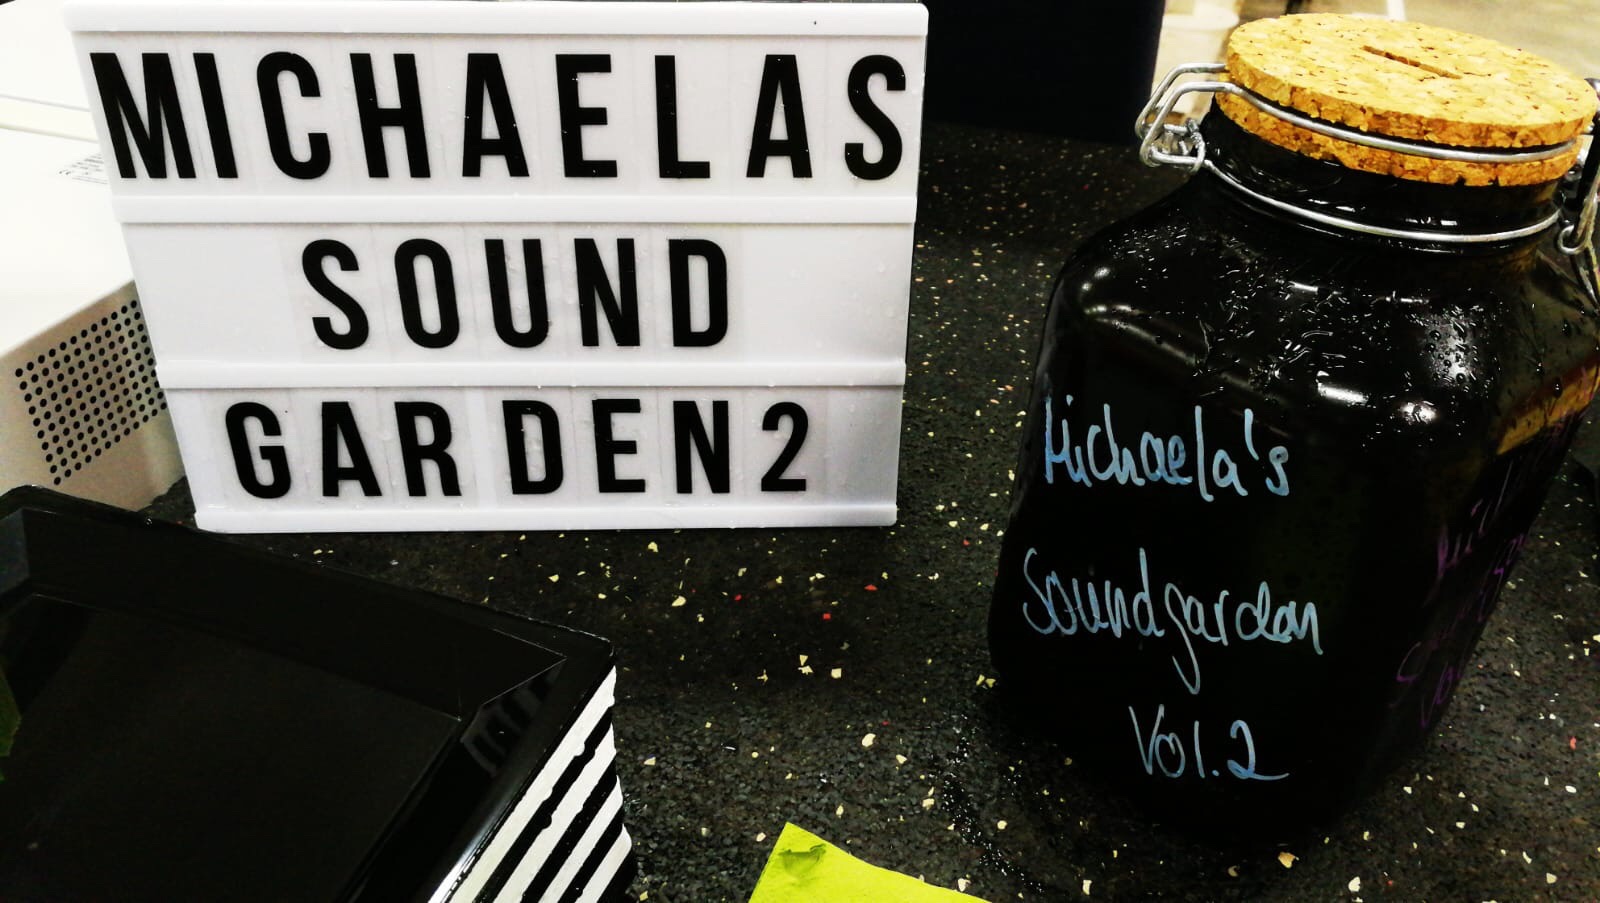 MICHAELAS
SOUND
GARDEN2
Michaela's
Soundgarden
Vol.2